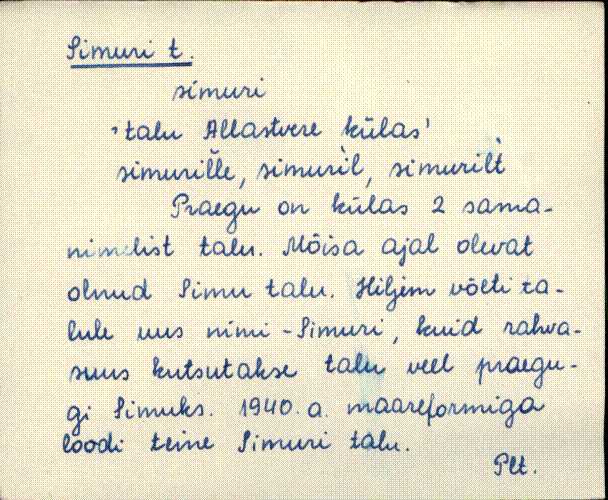 Simuri t.
simuri
'talu Allastvere külas'
simuril̆le, simuril̀, simuril̀t
Praegu on külas 2 sama-
nimelist talu. Mõisa ajal olevat
olnud Simu talu. Hiljem võeti ta-
lule uus nimi - Simuri, kuid rahva-
suus kutsutakse talu veel praegu-
gi Simuks. 1940. a. maareformiga
loodi teine Simuri talu.
Plt.